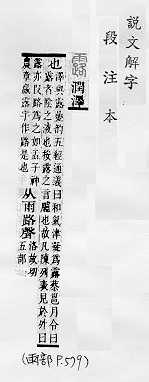 說文解字
段注本
露潤澤
也澤與露曡韵五經通義曰和氣津凝爲露蔡邕月令曰
露者陰之液也按露之言臚也故凡陳列表見於外曰
露亦叚路爲之如孟子神
農章羸露字作路是也
从雨路聲
洛故切
五部
(雨部 P.579)